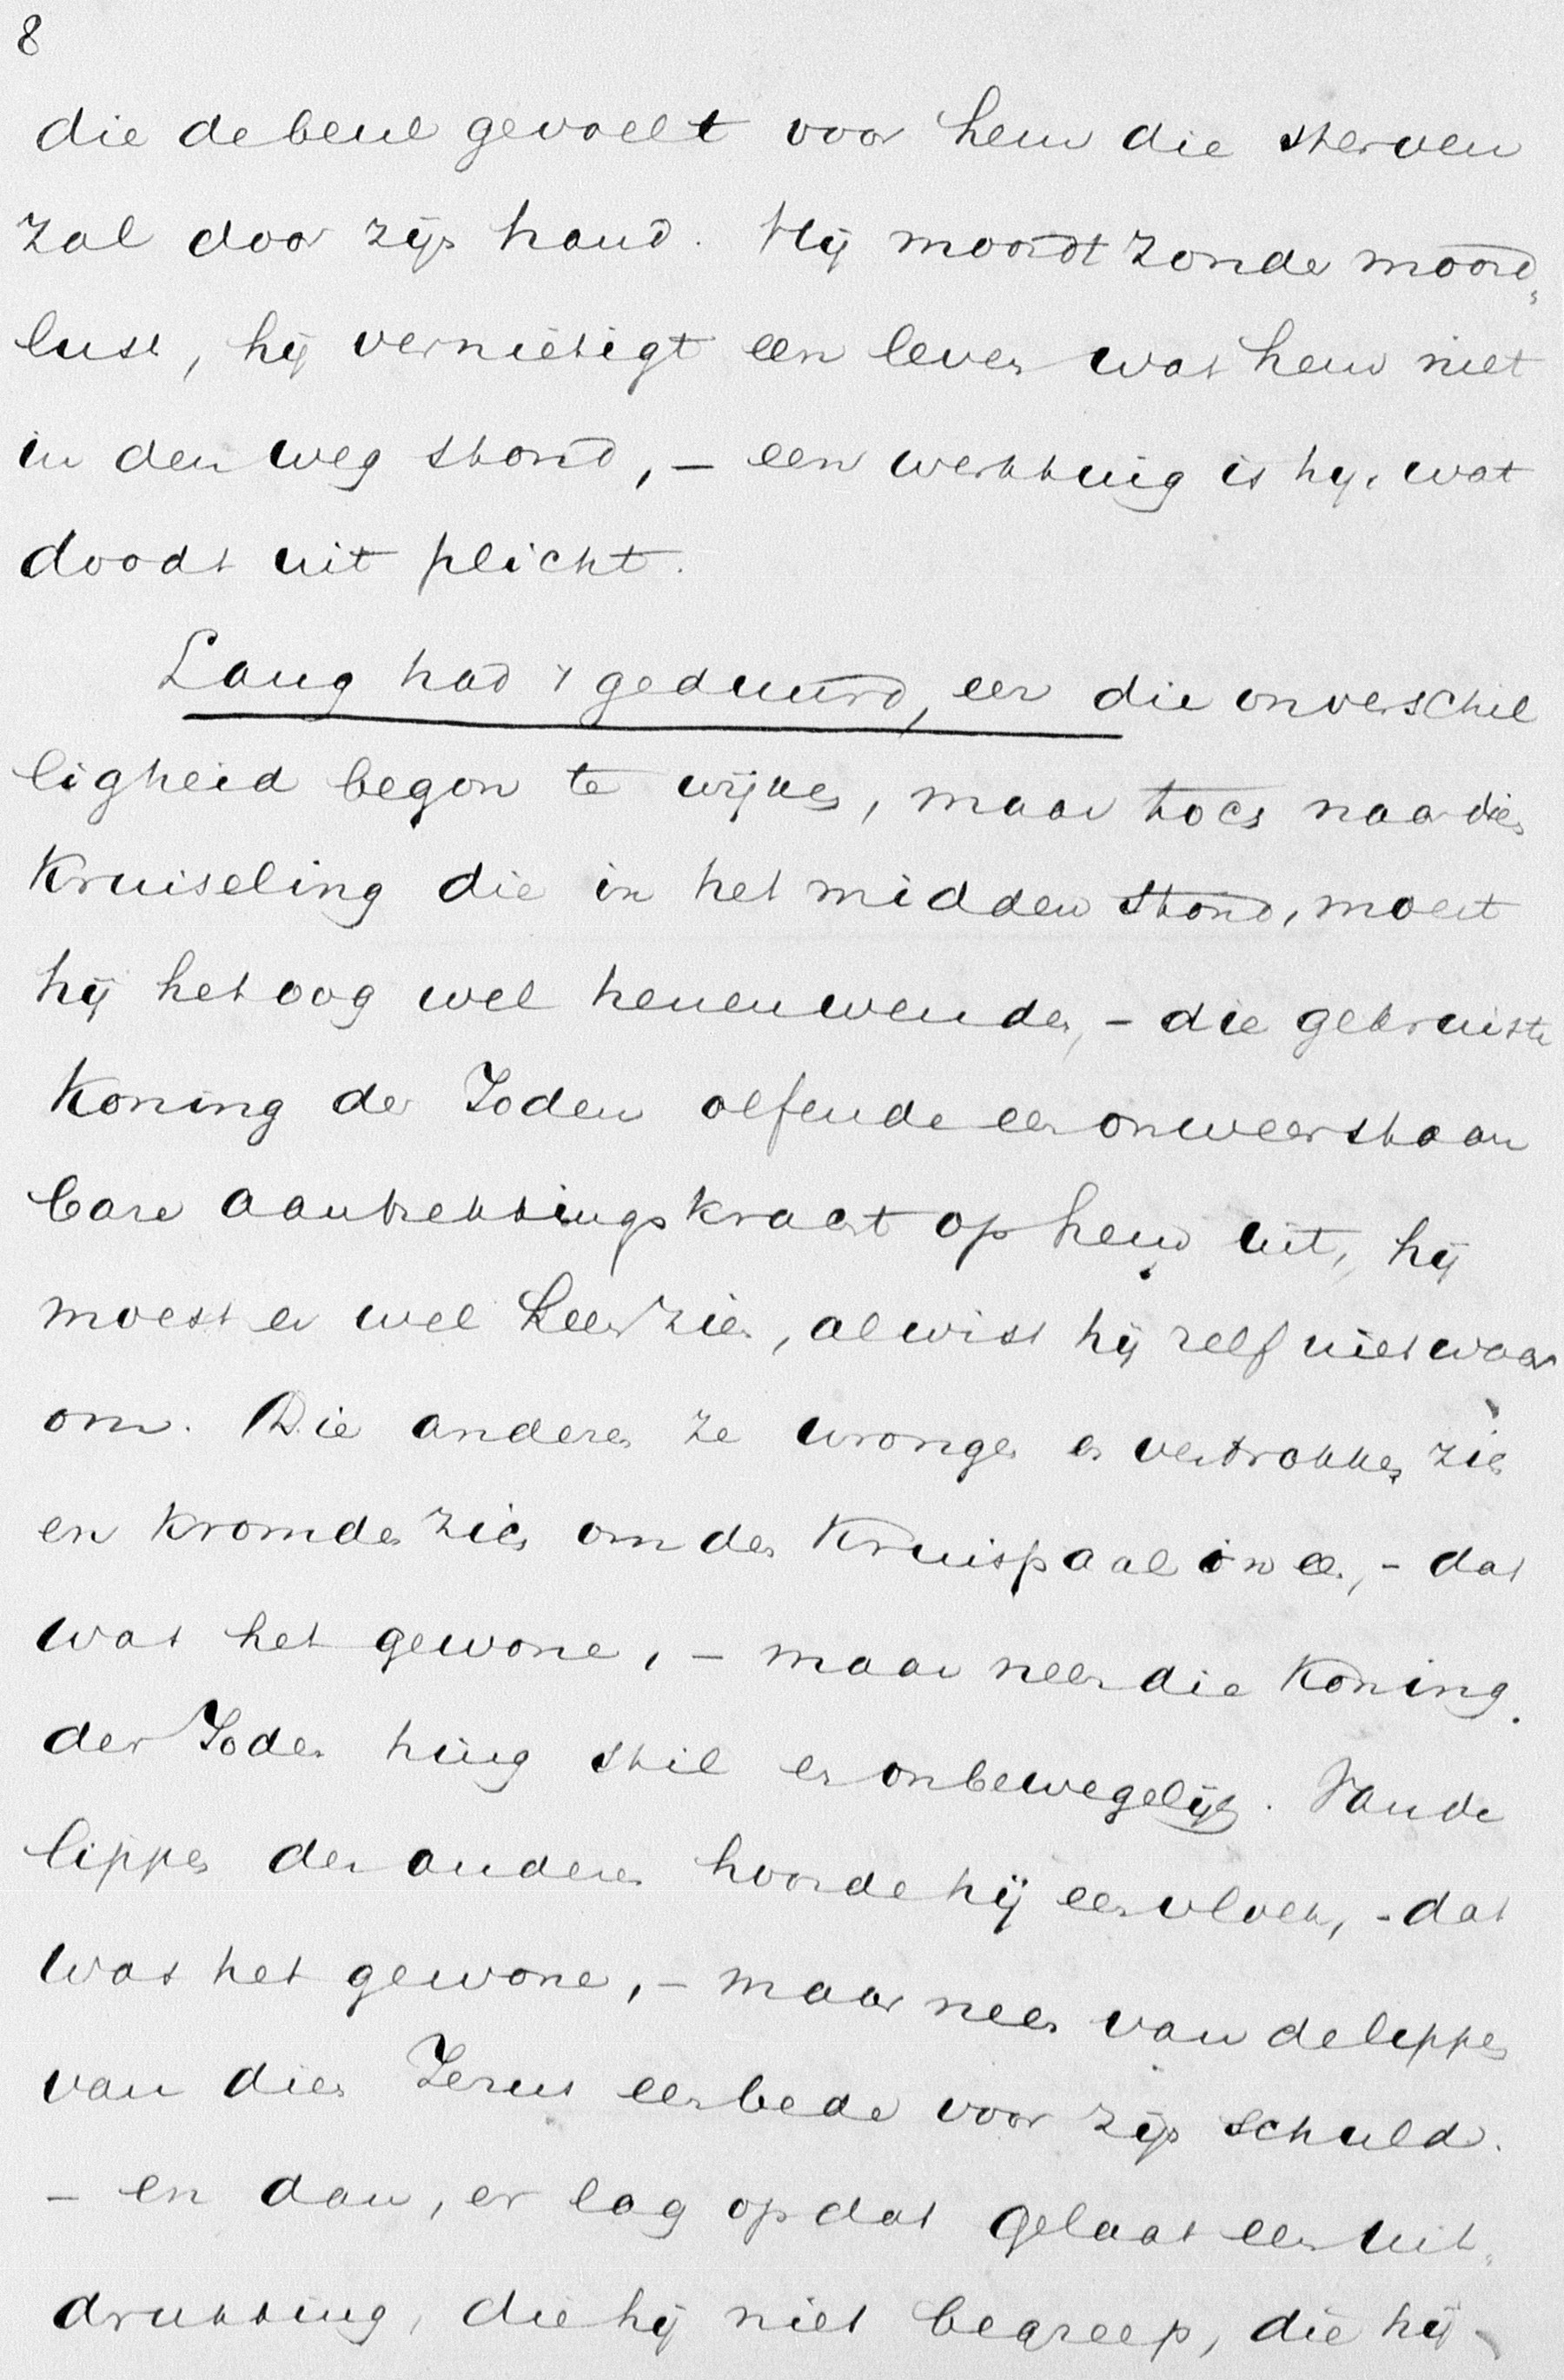 8
die de beul gevoelt voor hem die sterven
zal door zijn hand. Hij moordt zonder moord„
lust, hij vernietigt een leven wat hem niet
in den weg stond, – een werktuig is hij, wat
doodt uit plicht.
Lang had 't geduurd, eer die onverschil
ligheid begon te wijken, maar toch naar dien
kruiseling die in het midden stond, moest
hij het oog wel henenwenden, – die gekruiste
Koning der Joden oefende een onweerstaan
bare aantrekkingskracht op hem uit, hij
moest er wel heen zien, al wist hij zelf niet waar
om. Die anderen ze wrongen en vertrokken zich
en kromden zich om den kruispaal ineen, – dat
was het gewone, – maar neen die Koning
der Joden hing stil en onbewegelijk. Van de
lippen der anderen hoorde hij een vloek, – dat
was het gewone, – maar neen van de lippen
van dien Jezus een bede voor zijn schuld.
– en dan, er lag op dat gelaat een uit„
drukking, die hij niet begreep, die hij